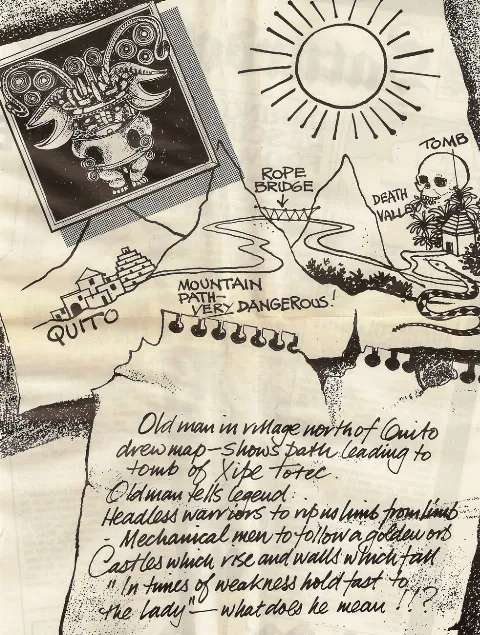 TOMB
ROPE
BRIDGE
DEATH
VALLEY
MOUNTAIN
PATH—
VERY DANGEROUS!
QUITO
Old man in village north of Quito
drew map – shows path leading to
tomb of Xipe Totec
Old man tells legend:
Headless warriors to rip us limb from limb
- Mechanical men to follow a golden orb
Castles which rise and walls which fall
"In times of weakness hold fast to
the lady" — what does he mean!!?